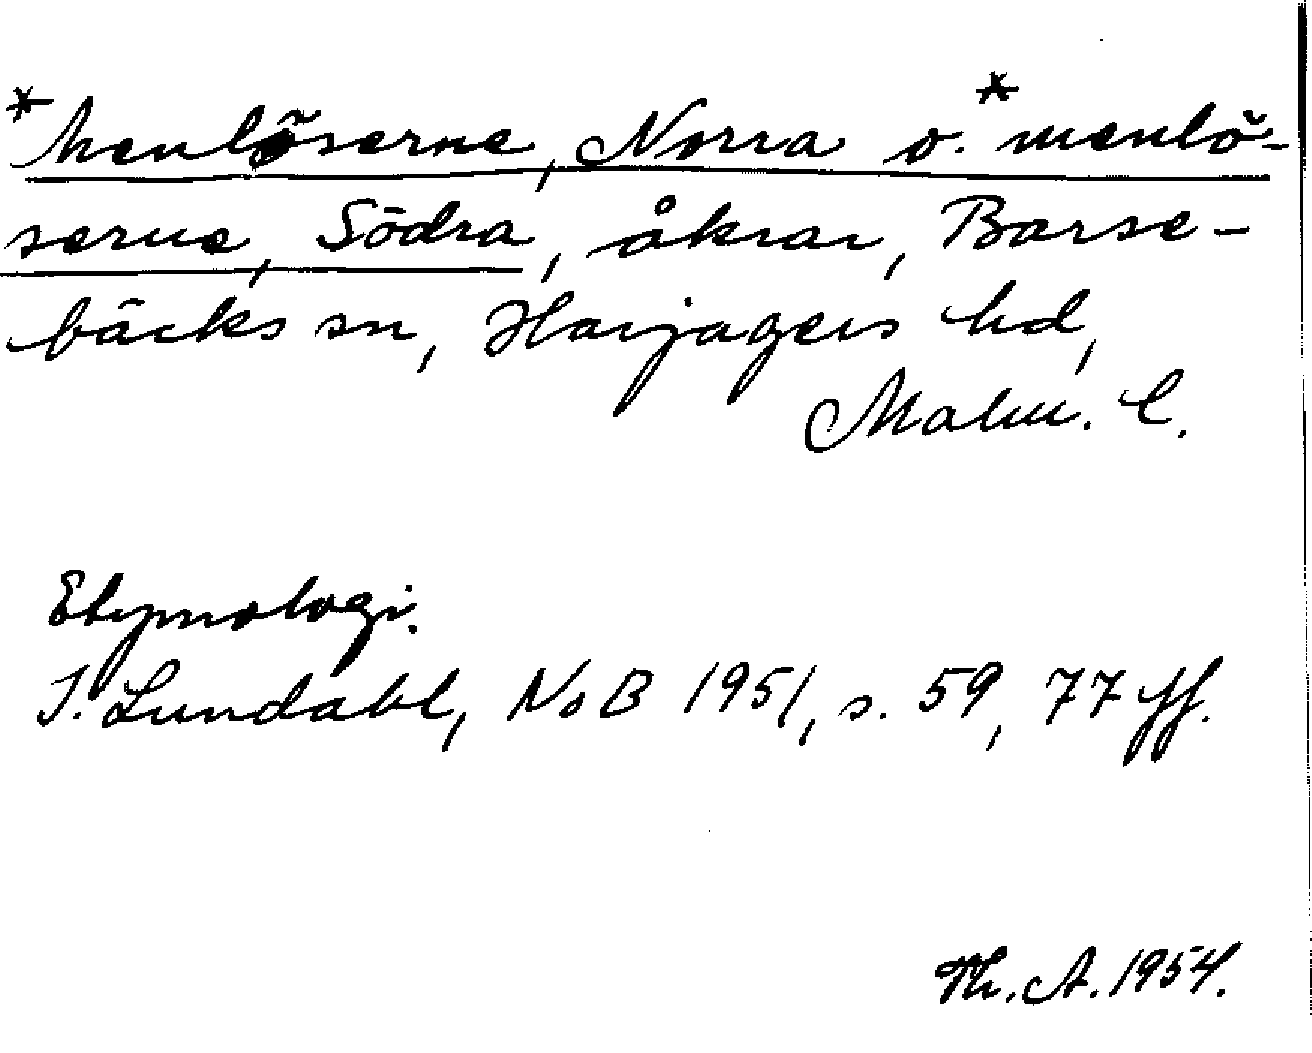 *Menlöserne, Norra o. *menlö-
serne, Södra, åkrar, Barse-
bäcks sn, Harjagers hd,
Malm. l.
Etymologi.
I. Lundahl, NoB 1951, s. 59, 77 ff.
Th. A. 1954.